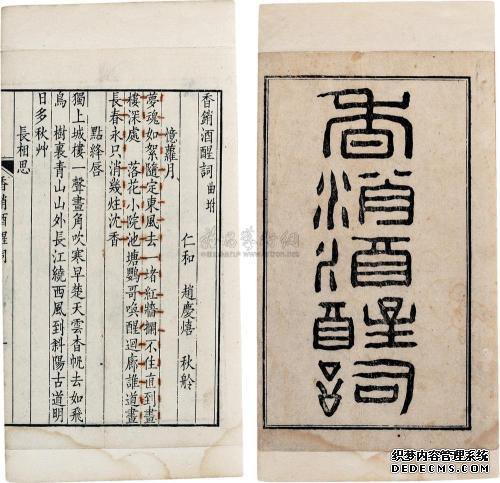 香消酒醒詞
香銷酒醒詞 曲坿
仁和 趙慶熺 秋舲
憶蘿月
夢魂如絮隨定東風去 一堵紅牆攔不住直到畫
樓深處 落花小院池塘鸚哥喚醒迴廊誰道晝
長春永只消幾炷沈香
點絳唇
獨上城樓一聲畫角吹寒早楚天雲杳帆去如飛
鳥 樹裏青山山外長江繞西風到斜陽古道明
日多秋艸
長相思
香銷酒醒詞
织梦内容管理系统
DEDECMS.COM